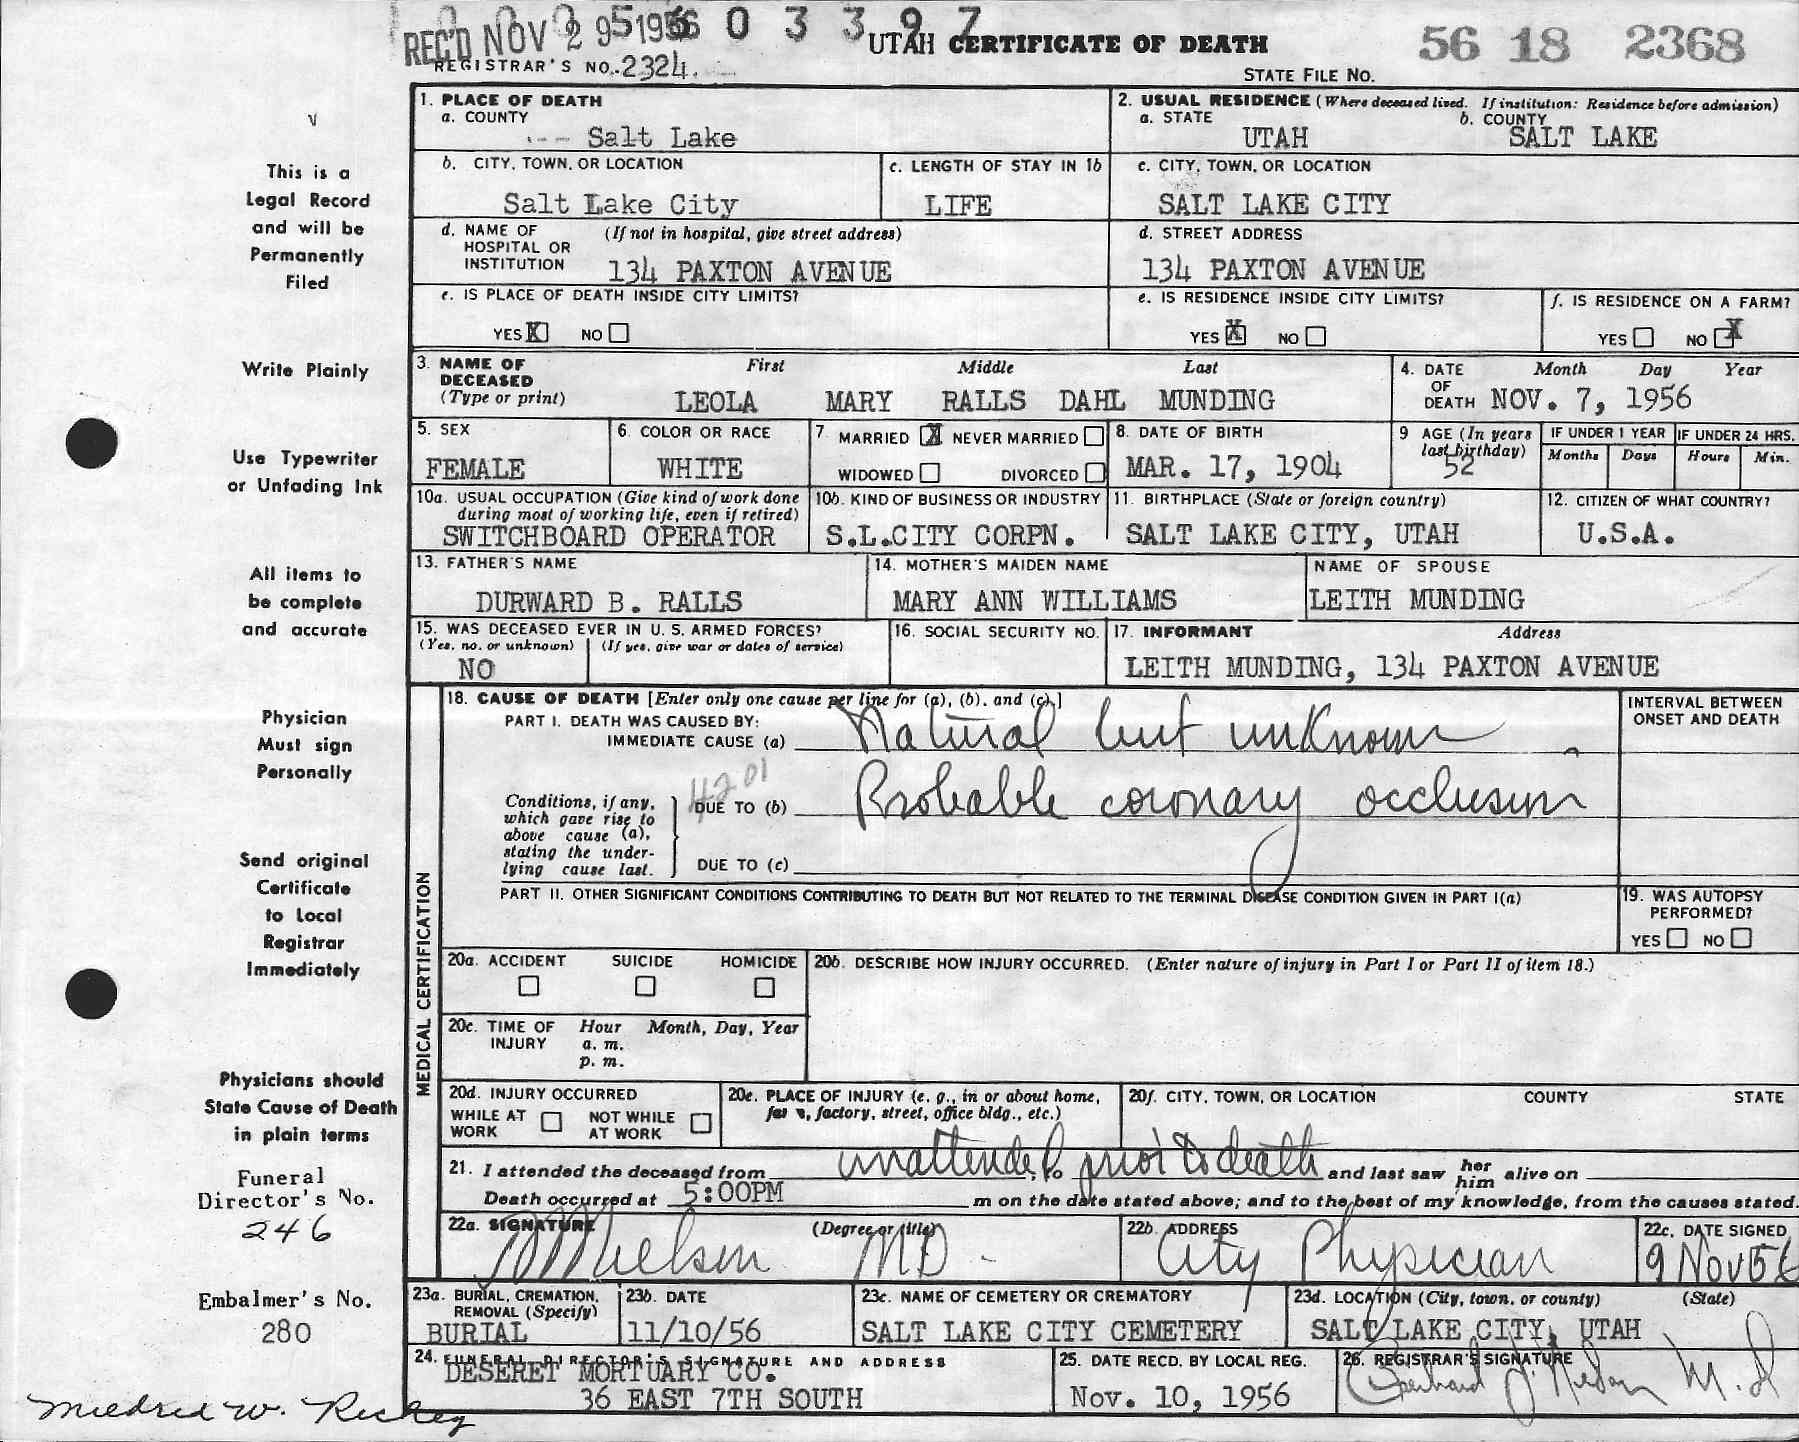 REC'D NOV 29 1956 0 3 3 9 7
UTAH CERTIFICATE OF DEATH
56 18 2368
REGISTRAR'S NO. 2324.
STATE FILE NO.
1. PLACE OF DEATH
a. COUNTY
Salt Lake
2. USUAL RESIDENCE (Where deceased lived. If institution: Residence before admission)
a. STATE
UTAH
b. COUNTY
SALT LAKE
b. CITY, TOWN, OR LOCATION
Salt Lake City
c. LENGTH OF STAY IN 1b
LIFE
c. CITY, TOWN, OR LOCATION
SALT LAKE CITY
d. NAME OF HOSPITAL OR INSTITUTION
(If not in hospital, give street address)
134 PAXTON AVENUE
d. STREET ADDRESS
134 PAXTON AVENUE
e. IS PLACE OF DEATH INSIDE CITY LIMITS?
YES X NO
e. IS RESIDENCE INSIDE CITY LIMITS?
YES X NO
f. IS RESIDENCE ON A FARM?
YES NO X
3. NAME OF DECEASED
(Type or print)
First Middle Last
LEOLA MARY RALLS DAHL MUNDING
4. DATE OF DEATH
Month Day Year
NOV. 7, 1956
5. SEX
FEMALE
6. COLOR OR RACE
WHITE
7. MARRIED X NEVER MARRIED
WIDOWED DIVORCED
8. DATE OF BIRTH
MAR. 17, 1904
9 AGE (In years last birthday)
52
IF UNDER 1 YEAR
Months Days
IF UNDER 24 HRS.
Hours Min.
10a. USUAL OCCUPATION (Give kind of work done
during most of working life, even if retired)
SWITCHBOARD OPERATOR
10b. KIND OF BUSINESS OR INDUSTRY
S.L.CITY CORPN.
11. BIRTHPLACE (State or foreign country)
SALT LAKE CITY, UTAH
12. CITIZEN OF WHAT COUNTRY?
U.S.A.
13. FATHER'S NAME
DURWARD B. RALLS
14. MOTHER'S MAIDEN NAME
MARY ANN WILLIAMS
NAME OF SPOUSE
LEITH MUNDING
15. WAS DECEASED EVER IN U. S. ARMED FORCES?
(Yes, no. or unknown) (If yes, give war or dates of service)
NO
16. SOCIAL SECURITY NO.
17. INFORMANT Address
LEITH MUNDING, 134 PAXTON AVENUE
MEDICAL CERTIFICATION
18. CAUSE OF DEATH [Enter only one cause per line for (a), (b). and (c).]
PART I. DEATH WAS CAUSED BY:
IMMEDIATE CAUSE (a) Natural but unknown
INTERVAL BETWEEN
ONSET AND DEATH
4201
Conditions, if any,
which gave rise to
above cause (a),
stating the under-
lying cause last.
DUE TO (b) Probable coronary occlusion
DUE TO (c)
PART II. OTHER SIGNIFICANT CONDITIONS CONTRIBUTING TO DEATH BUT NOT RELATED TO THE TERMINAL DISEASE CONDITION GIVEN IN PART I(a)
19. WAS AUTOPSY
PERFORMED?
YES NO
20a. ACCIDENT SUICIDE HOMICIDE
20b. DESCRIBE HOW INJURY OCCURRED. (Enter nature of injury in Part I or Part II of item 18.)
20c. TIME OF INJURY
Hour Month, Day, Year
a. m.
p. m.
20d. INJURY OCCURRED
WHILE AT WORK NOT WHILE AT WORK
20e. PLACE OF INJURY (e. g., in or about home,
factory, street, office bldg., etc.)
20f. CITY, TOWN, OR LOCATION COUNTY STATE
21. I attended the deceased from unattended to prior to death and last saw her him alive on
Death occurred at 5:00PM m on the date stated above; and to the best of my knowledge, from the causes stated.
22a. SIGNATURE (Degree or title)
Nielsen MD
22b. ADDRESS
City Physician
22c. DATE SIGNED
9 Nov 56
23a. BURIAL, CREMATION,
REMOVAL (Specify)
BURIAL
23b. DATE
11/10/56
23c. NAME OF CEMETERY OR CREMATORY
SALT LAKE CITY CEMETERY
23d. LOCATION (City, town, or county) (State)
SALT LAKE CITY, UTAH
24. FUNERAL DIRECTOR'S SIGNATURE AND ADDRESS
DESERET MORTUARY CO.
36 EAST 7TH SOUTH
25. DATE RECD. BY LOCAL REG.
Nov. 10, 1956
26. REGISTRAR'S SIGNATURE
M.D
This is a
Legal Record
and will be
Permanently
Filed
Write Plainly
Use Typewriter
or Unfading Ink
All items to
be complete
and accurate
Physician
Must sign
Personally
Send original
Certificate
to Local
Registrar
Immediately
Physicians should
State Cause of Death
in plain terms
Funeral
Director's No.
246
Embalmer's No.
280
Mildred W. Rickey